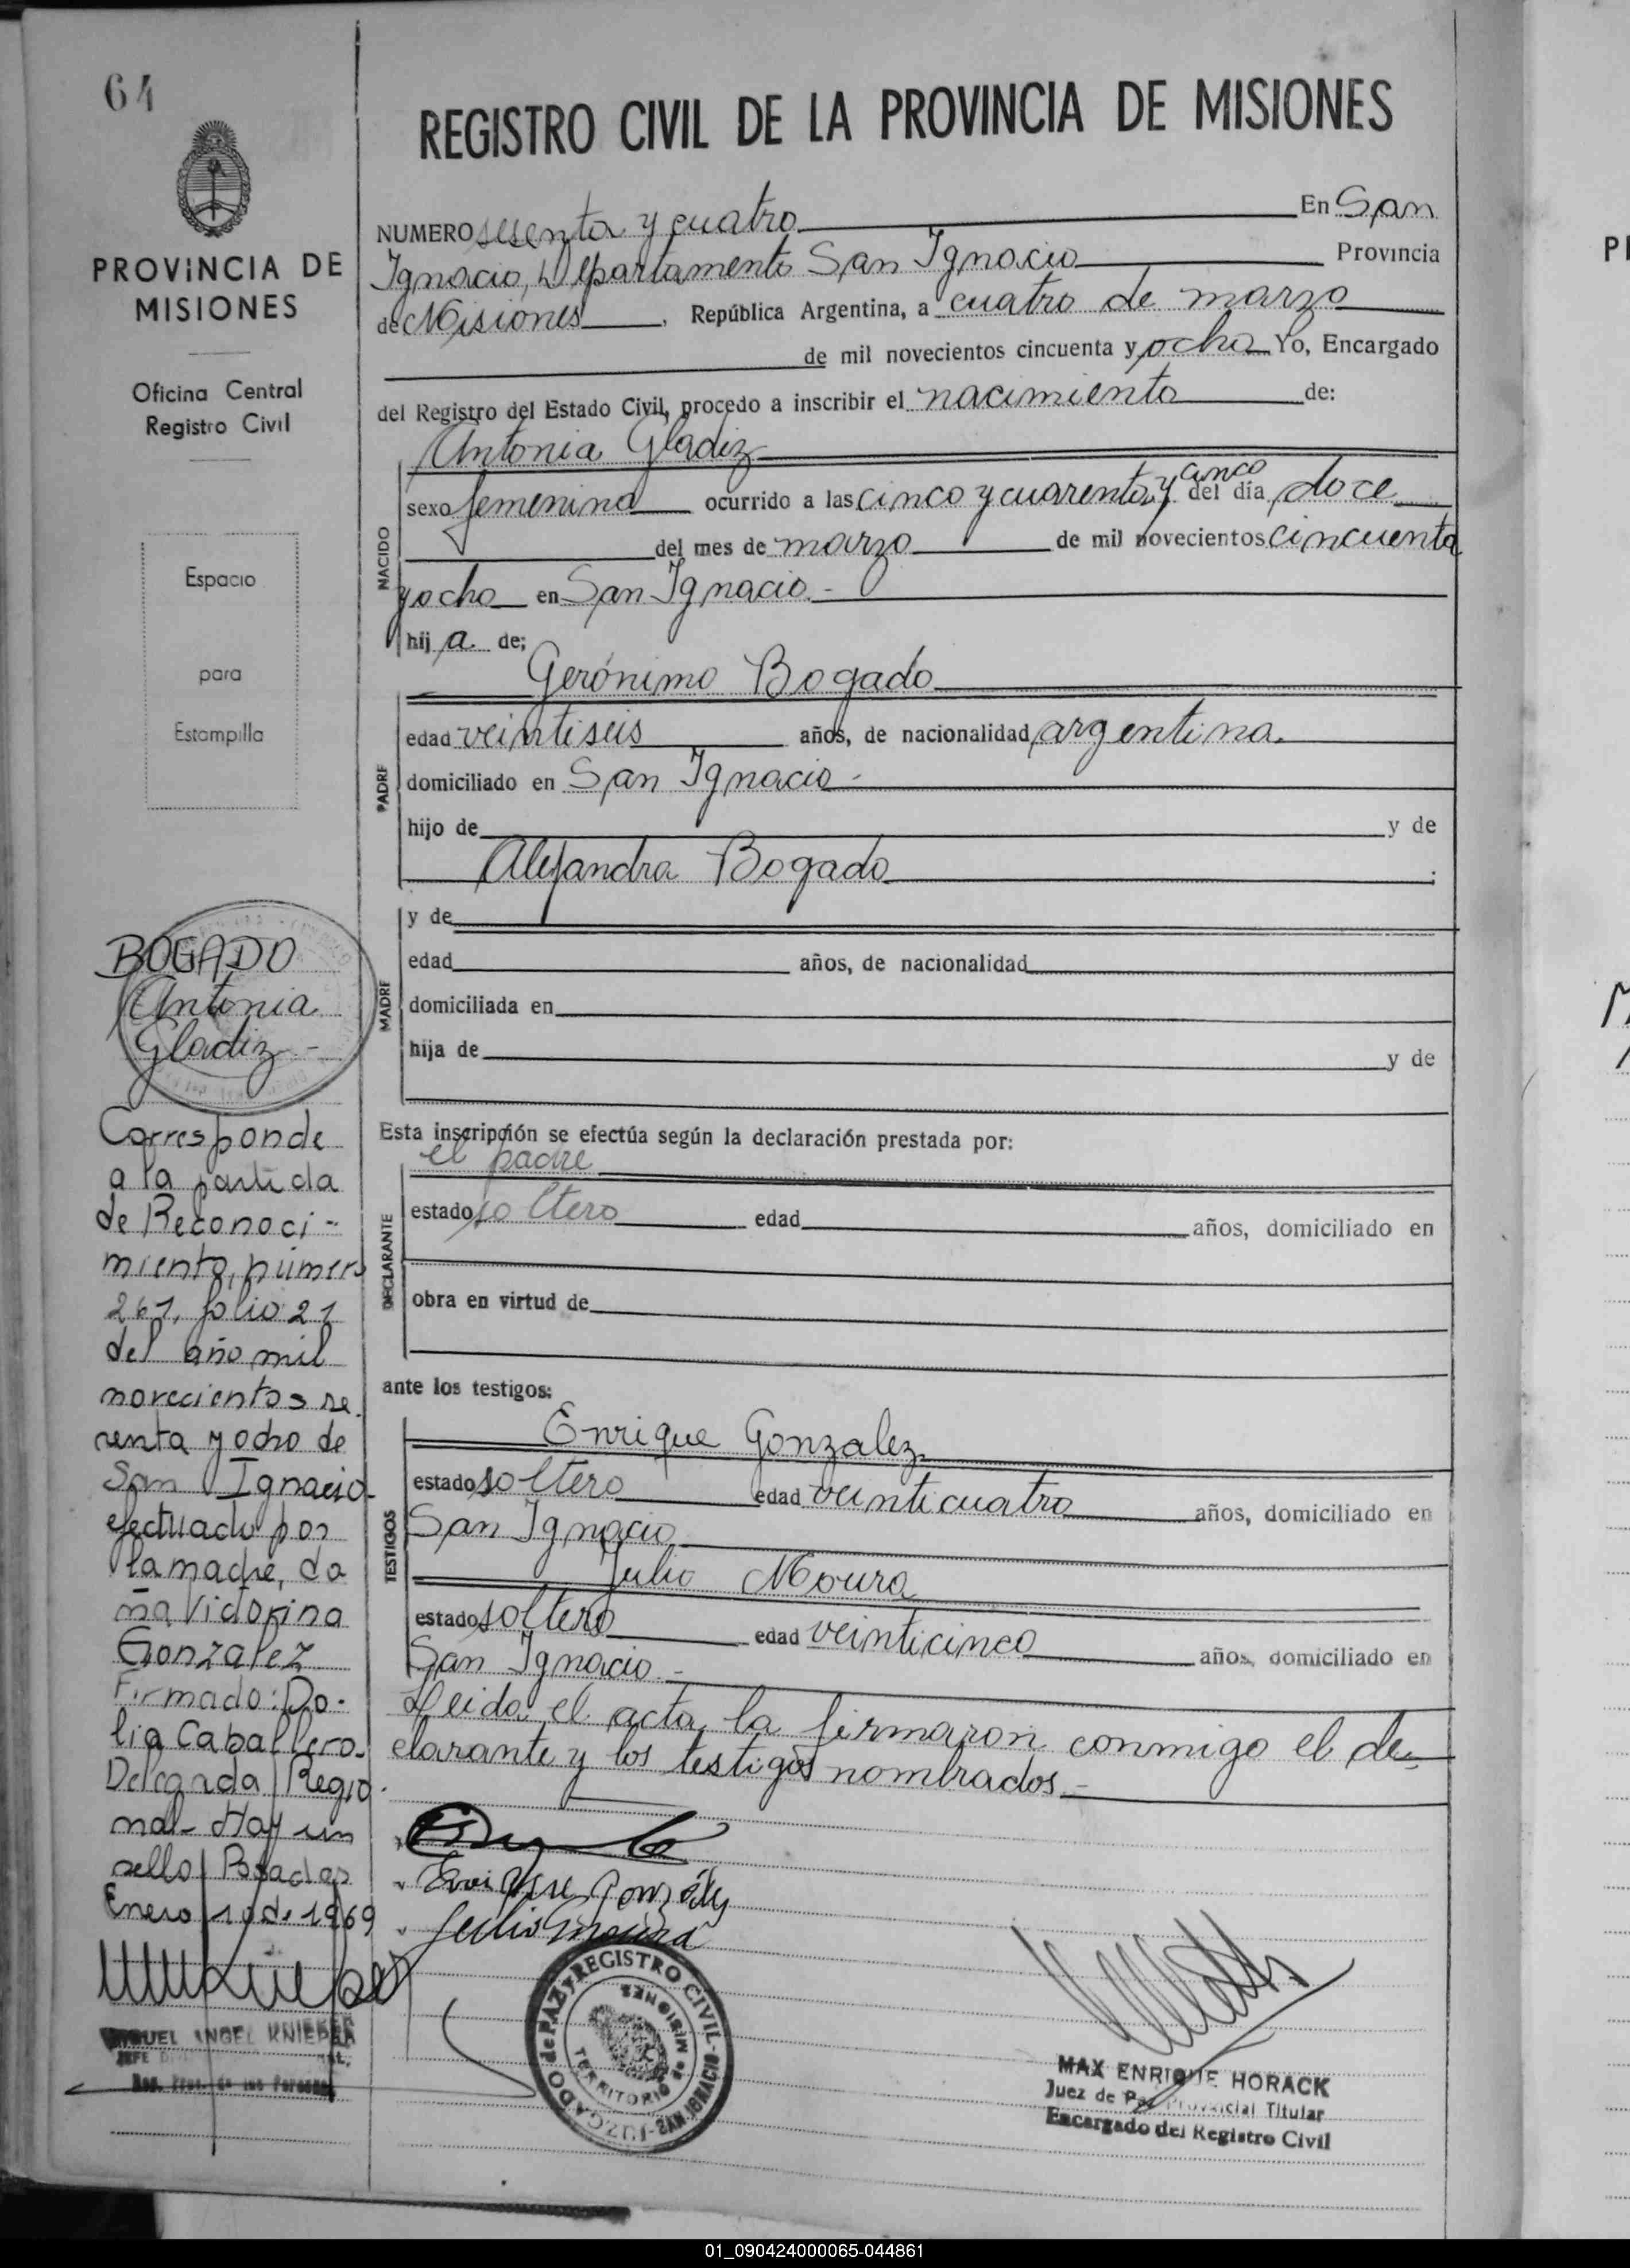 64
PROVINCIA DE
MISIONES
Oficina Central
Registro Civil
Espacio
para
Estampilla
BOGADO
Antonia
Gladiz -
Corresponde
a la partida
de Reconoci-
miento, número
261, folio 21
del año mil
novecientos se
senta y ocho de
San Ignacio
efectuado por
la madre, do
ña Vidorina
Gonzalez
Firmado: De-
lia Caballero.
Delegada Regio
nal- Hay un
sello Posadas
Enero 10 de 1969
MIGUEL ANGEL KNIEPER
JEFE
REGISTRO CIVIL DE LA PROVINCIA DE MISIONES
NUMERO sesenta y cuatro En San
Ignacio, Departamento San Ignacio Provincia
de Misiones, República Argentina, a cuatro de marzo
de mil novecientos cincuenta y ocho Yo, Encargado
del Registro del Estado Civil, procedo a inscribir el nacimiento de:
Antonia Gladiz
NACIDO
sexo femenino ocurrido a las cinco y cuarenta y cinco del día doce
del mes de marzo de mil novecientos cincuenta
y ocho en San Ignacio.-
hija de;
Gerónimo Bogado
PADRE
edad veintiseis años, de nacionalidad argentina.
domiciliado en San Ignacio -
hijo de y de
Alejandra Bogado
MADRE
y de
edad años, de nacionalidad
domiciliada en
hija de y de
Esta inscripción se efectúa según la declaración prestada por:
el padre
DECLARANTE
estado soltero edad años, domiciliado en
obra en virtud de
ante los testigos:
Enrique Gonzalez
TESTIGOS
estado soltero edad veinticuatro años, domiciliado en
San Ignacio
Julio Moura
estado soltero edad veinticinco años, domiciliado en
San Ignacio -
Leida el acta, la firmaron conmigo el de-
clarante y los testigos nombrados -
Enrique Gonzalez
Julio Moura
JUZGADO de PAZ y REGISTRO CIVIL - SAN IGNACIO -
TERRITORIO de MISIONES
MAX ENRIQUE HORACK
Juez de Paz Provincial Titular
Encargado del Registro Civil
01_090424000065-044861